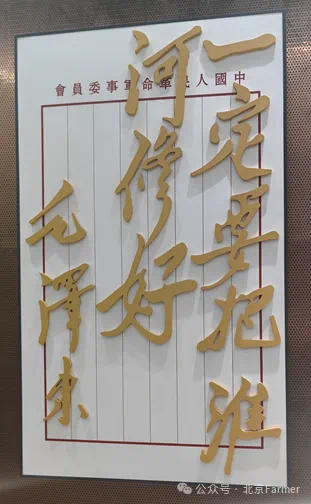 中國人民革命軍事委員會
一定要把淮
河修好
毛澤东
公众号 · 北京Farmer